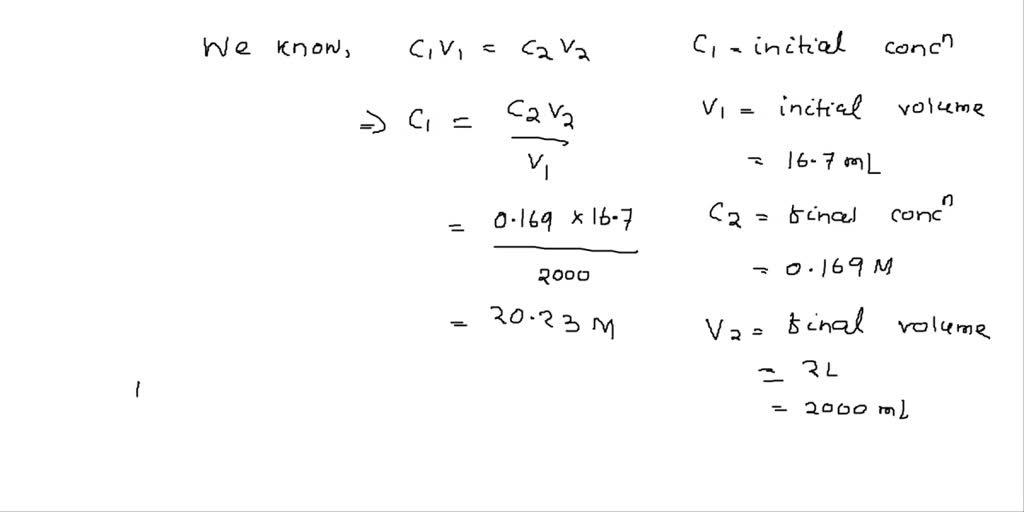 We know, C₁V₁ = C₂V₂
⇒ C₁ = C₂V₂ / V₁
= 0.169 × 16.7 / 2000
= 20.23 M
C₁ = initial concⁿ
V₁ = initial volume
= 16.7 mL
C₂ = final concⁿ
= 0.169 M
V₂ = final volume
= 2L
= 2000 mL